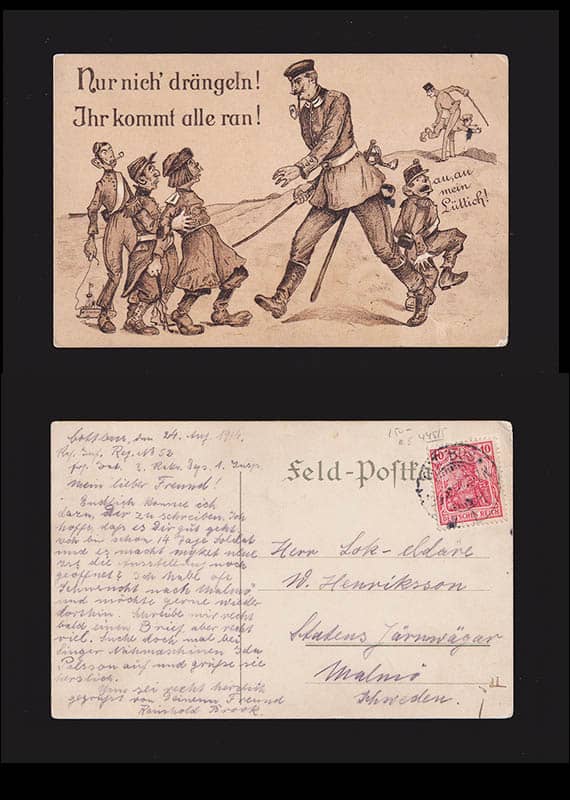 Nur nich' drängeln!
Ihr kommt alle ran!
au, au
mein
Lüttich!
Cottbus, den 24. Aug. 1914.
Reg. No 52
1.
Mein lieber Freund!
Endlich komme ich
dazu, Dir zu schreiben. Ich
hoffe, daß es Dir gut geht.
Ich bin schon 14 Tage Soldat
und es macht
die Ausstellung noch
geöffnet? Ich habe oft
Sehnsucht nach Malmö
und möchte gerne wieder
dorthin. Schreibe mir recht
bald einen Brief aber recht
viel. Suche doch mal bei
Singer Nähmaschinen Ida
Palsson auf und grüße sie
herzlich.
Nun sei recht herzlich
gegrüßt von Deinem Freund
Reinhold
Feld-Postka
10 10
DEUTSCHES REICH
Herr Lok-eldare
W. Henriksson
Statens Järnwägar
Malmö
Schweden.